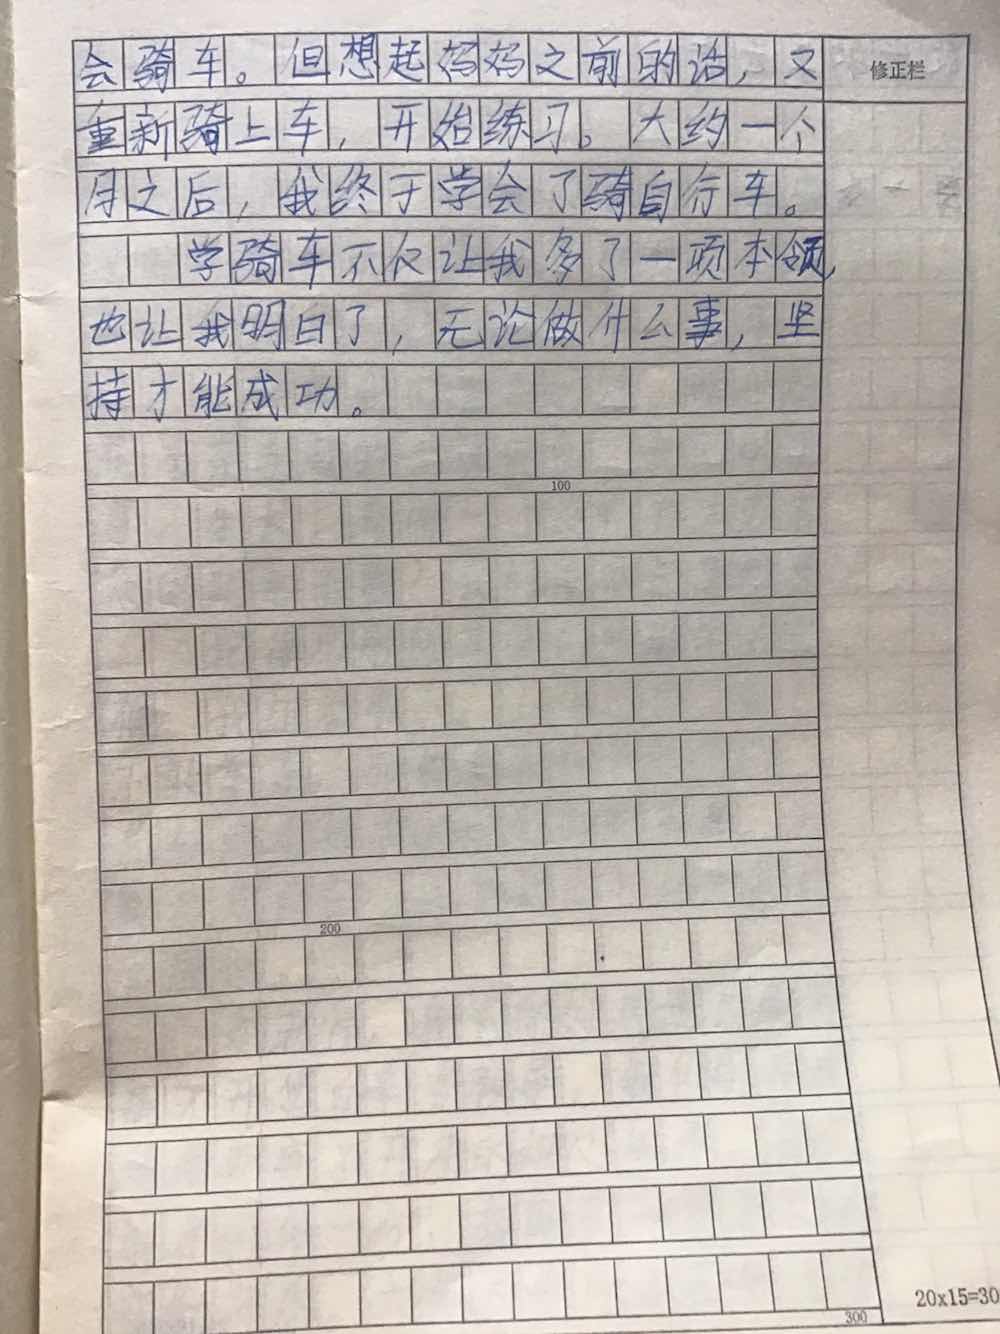 会骑车。但想起妈妈之前的话，又
修正栏
重新骑上车，开始练习。大约一个
月之后，我终于学会了骑自行车。
学骑车不仅让我多了一项本领，
也让我明白了，无论做什么事，坚
持才能成功。
100
200
300
20x15=30